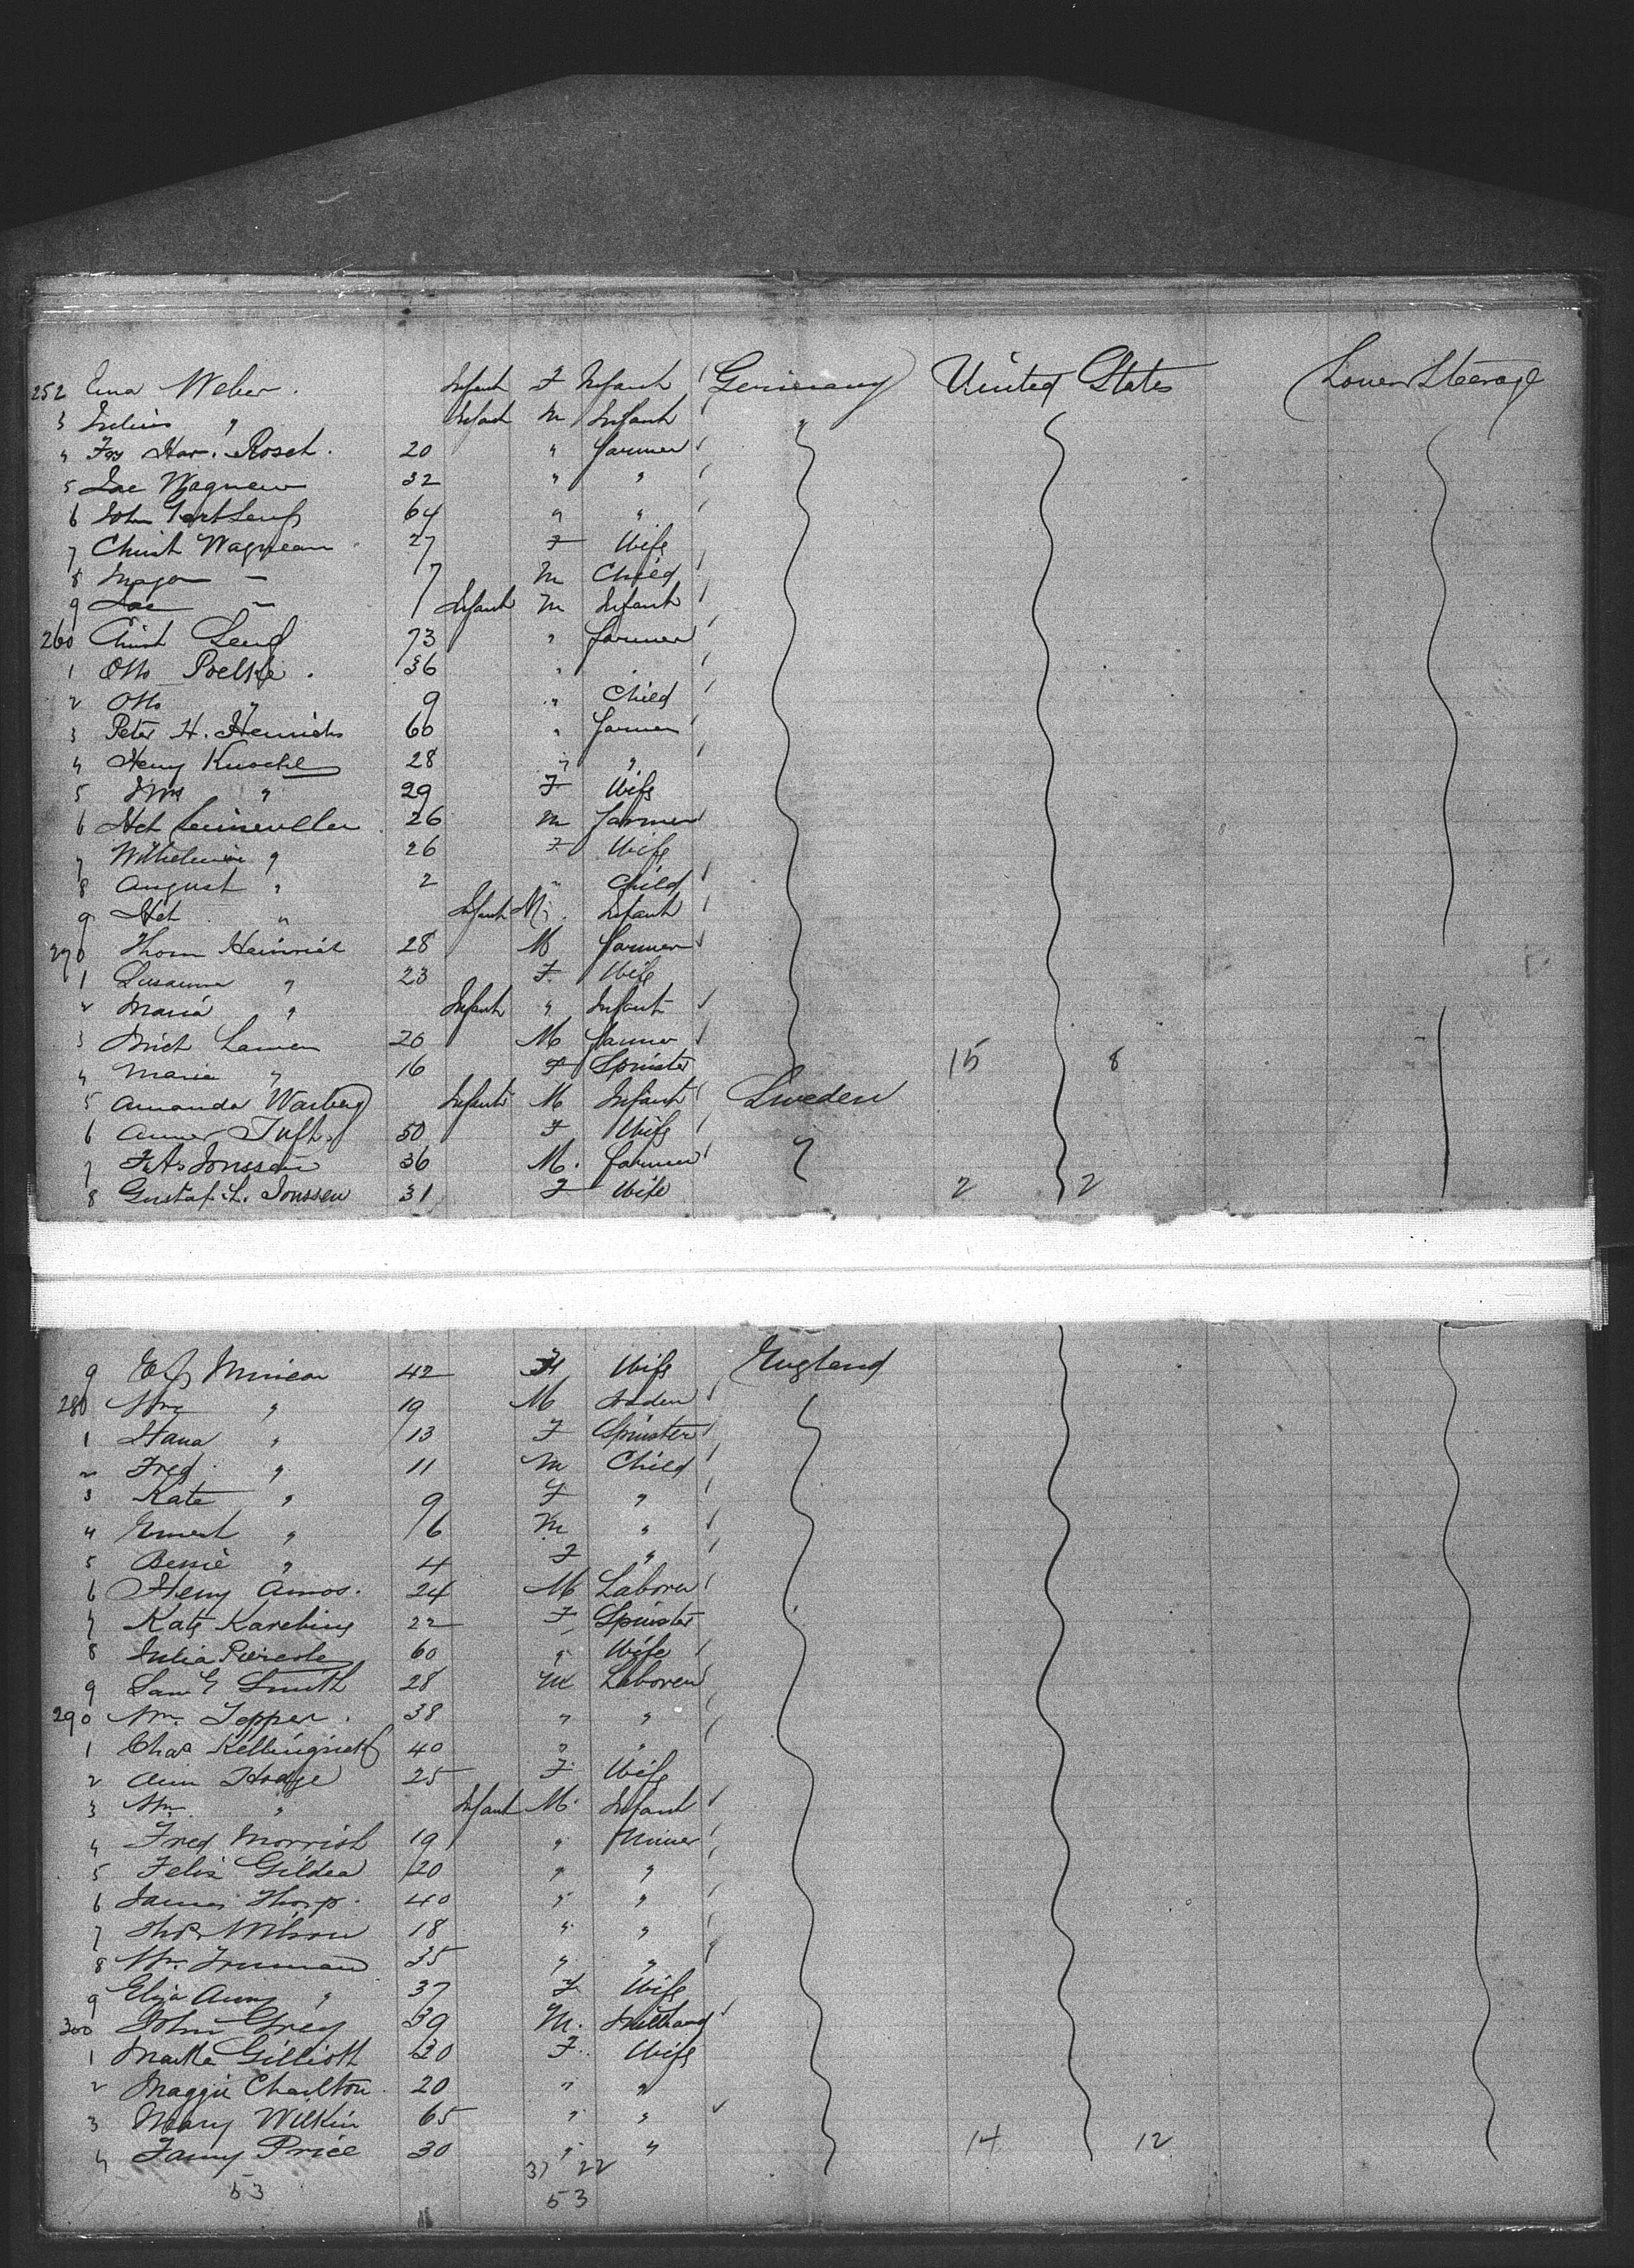 252 Ema Weber. Infant F Infant Germany United States Lower Steerage
3 Julius " Infant M Infant "
4 Har. Rosch. 20 " farmer
5 Jac Wagnew 32 " "
6 John 64 " "
7 Christ Wagnean 27 F Wife
8 — 7 M Child
9 Jac — Infant M Infant
260 Christ Senf 73 " farmer
1 Otto Poelske. 36 " "
2 Otto " 9 " Child
3 Peter H. Henrichs 60 " farmer
4 Henry Kuschel 28 " "
5 Mrs " 29 F Wife
6 Het 26 M farmer
7 Wilhelmine " 26 F Wife
8 August " 2 " Child
9 Het " Infant M. Infant
270 Thom Heinrich 28 M farmer
1 Susanna " 23 F. Wife
2 Maria " Infant " Infant
3 20 M farmer
4 Maria " 16 F Spinster 15 8
5 Amanda Warberg Infant M Infant Sweden
6 Anner Tuft 50 F Wife "
7 Jonssen 36 M. farmer
8 Gustaf L. Jonssen 31 F Wife 2 2
9 Minion 42 F Wife England
280 Wm " 19 M
1 Hana " 13 F Spinster
2 Fred " 11 M Child
3 Kate " 9 F "
4 Ernest " 6 M "
5 Bessie " 4 F "
6 Henry Amos. 24 M Laborer
7 Kate 22 F Spinster
8 Julia 60 " Wife
9 Saml Smith 28 M Laborer
290 Wm. Tepper. 38 " "
1 Chas 40 " "
2 Ann Hodge 25 F Wife
3 Wm. " Infant M. Infant
4 Fred Morrish 19 " Miner
5 Felix Gildea 20 " "
6 James Thorp. 40 " "
7 Thos Wilson 18 " "
8 Wm. Truman 35 " "
9 Eliza Anny " 37 F Wife
300 John Grey 39 M. Millhand
1 Martha Gilliott 30 F. Wife
2 Maggie Charlton 20 " "
3 Mary Wilkin 65 " "
4 Fanny Price 30 " " 14 12
31 22
53 53